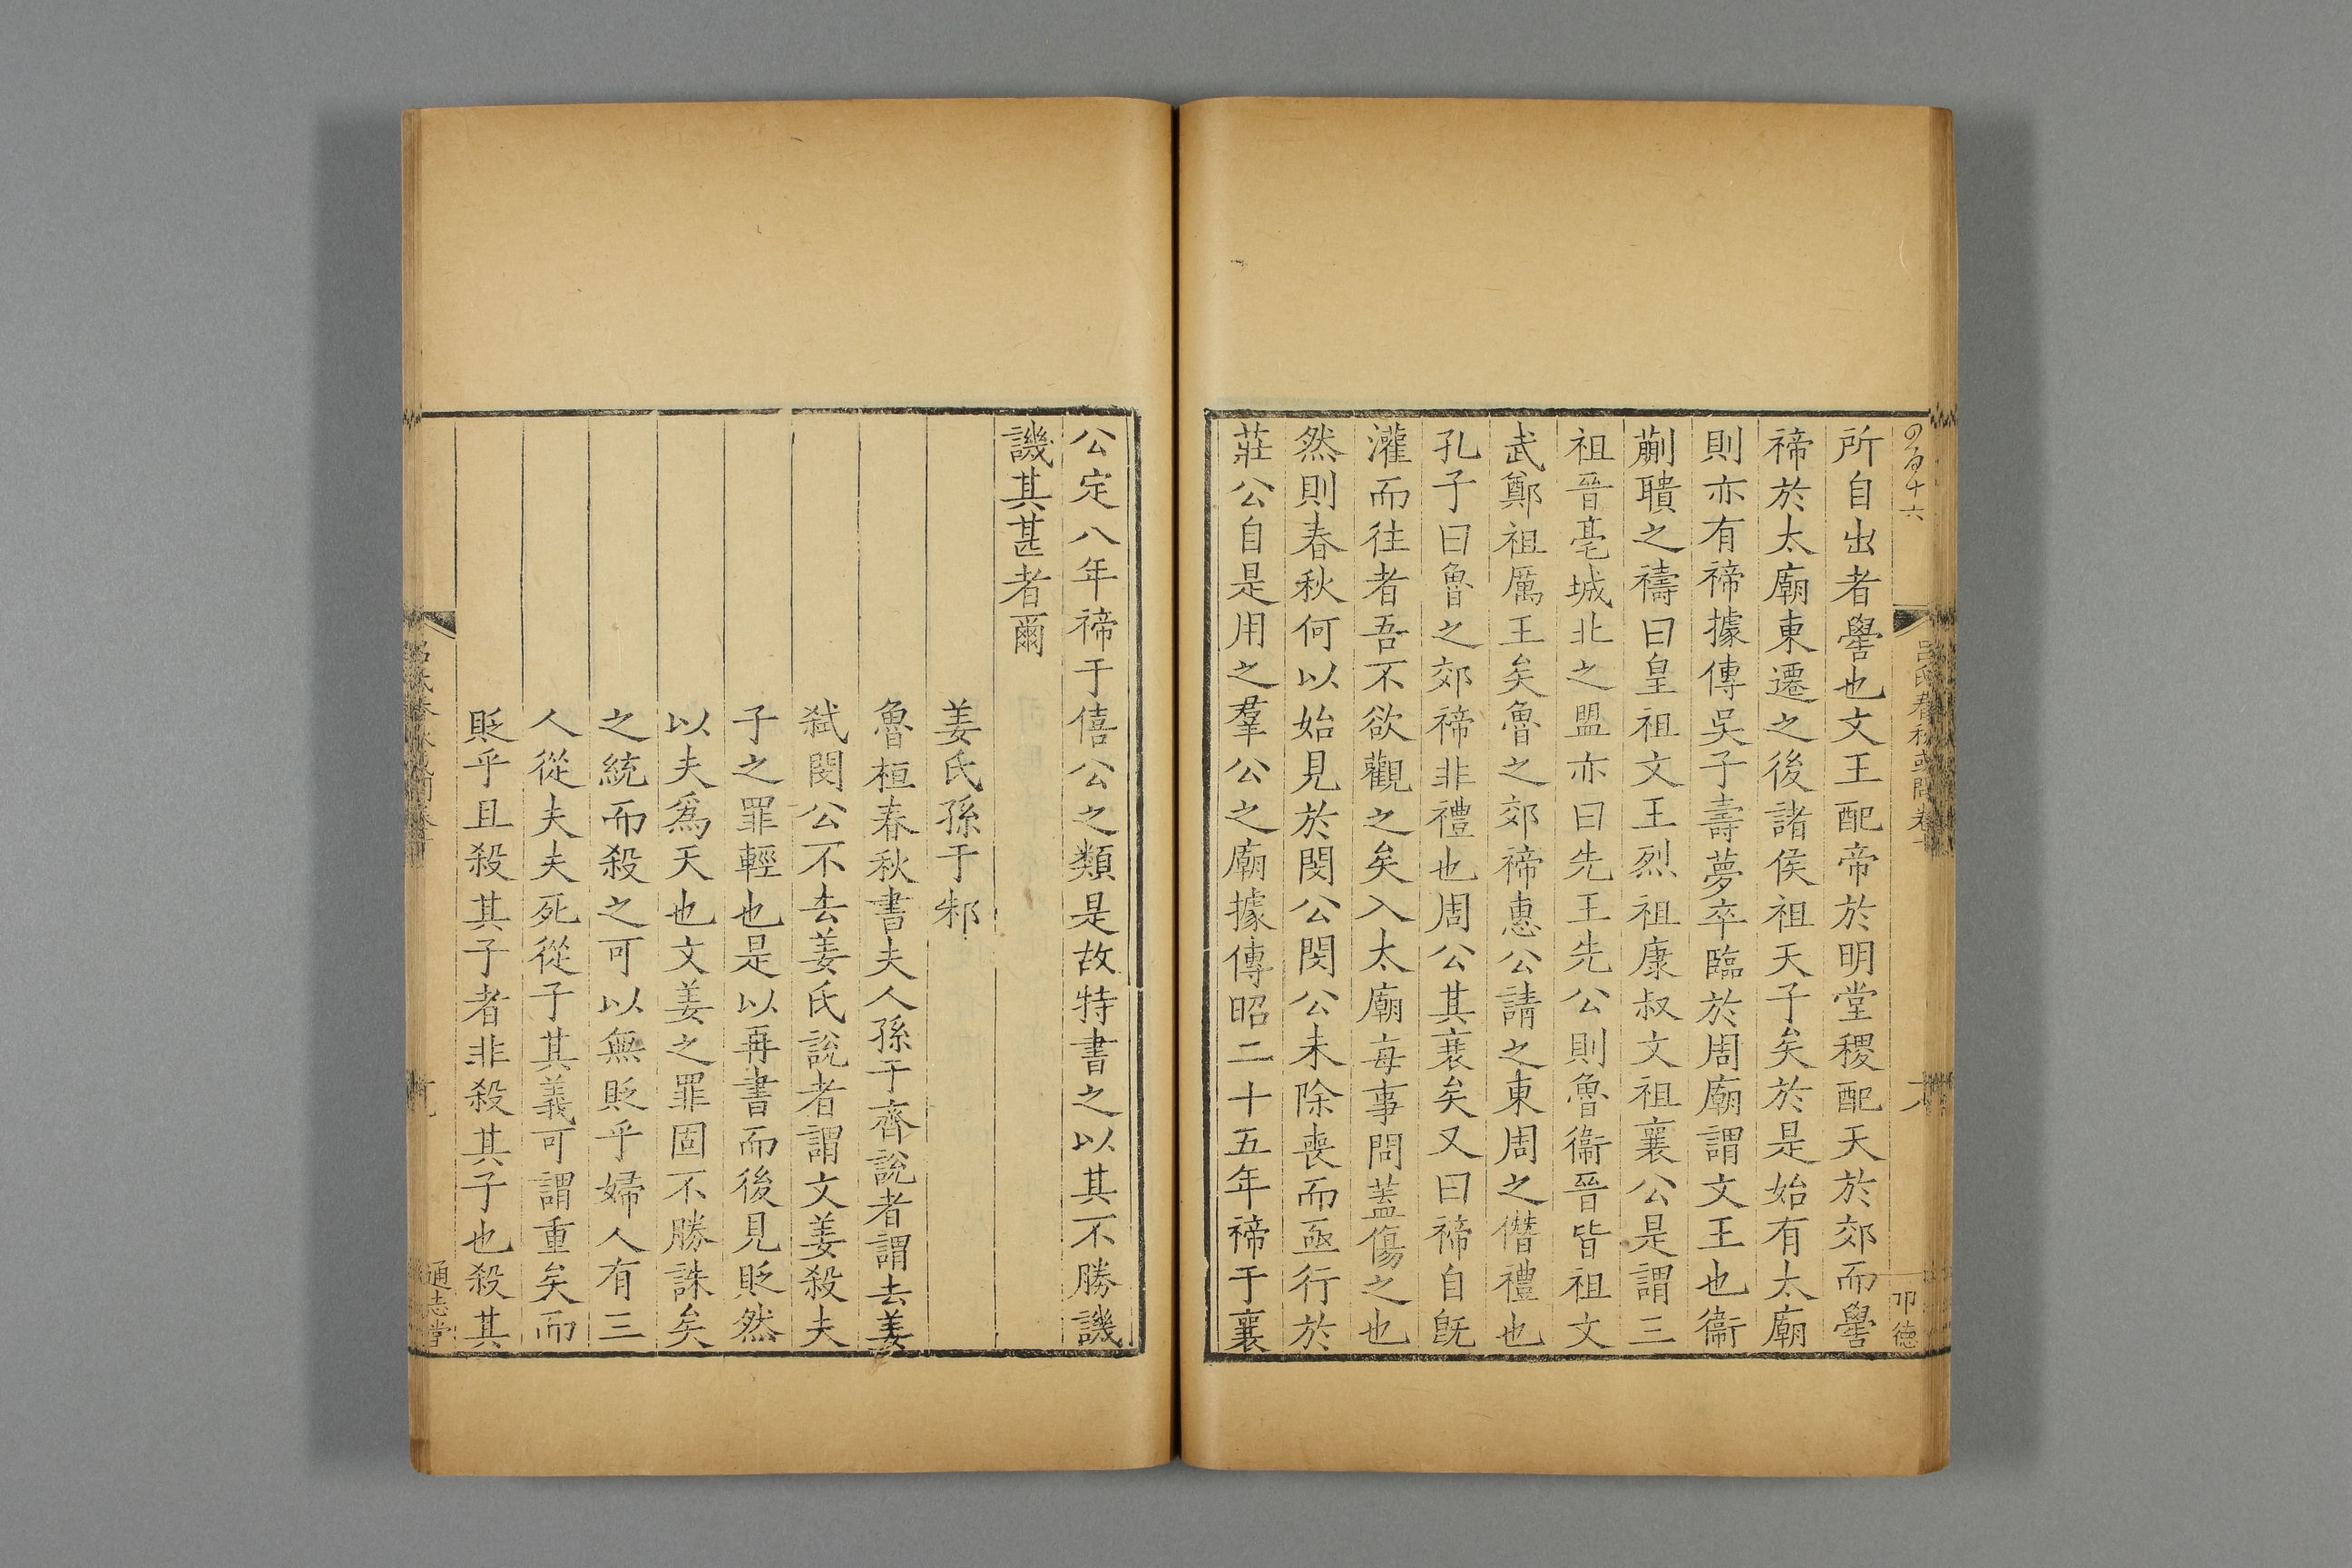 所自出者嚳也文王配帝於明堂稷配天於郊而嚳
禘於太廟東遷之後諸侯祖天子矣於是始有太廟
則亦有禘據傳吳子壽夢卒臨於周廟謂文王也衞
蒯聵之禱曰皇祖文王烈祖康叔文祖襄公是謂三
祖晉亳城北之盟亦曰先王先公則魯衞晉皆祖文
武鄭祖厲王矣魯之郊禘惠公請之東周之僭禮也
孔子曰魯之郊禘非禮也周公其衰矣又曰禘自旣
灌而往者吾不欲觀之矣入太廟每事問蓋傷之也
然則春秋何以始見於閔公閔公未除喪而亟行於
莊公自是用之羣公之廟據傳昭二十五年禘于襄
公定八年禘于僖公之類是故特書之以其不勝譏
譏其甚者爾
姜氏孫于邾
魯桓春秋書夫人孫于齊說者謂去姜
弑閔公不去姜氏說者謂文姜殺夫
子之罪輕也是以再書而後見貶然
以夫爲天也文姜之罪固不勝誅矣
之統而殺之可以無貶乎婦人有三
人從夫夫死從子其義可謂重矣而
貶乎且殺其子者非殺其子也殺其
通志堂